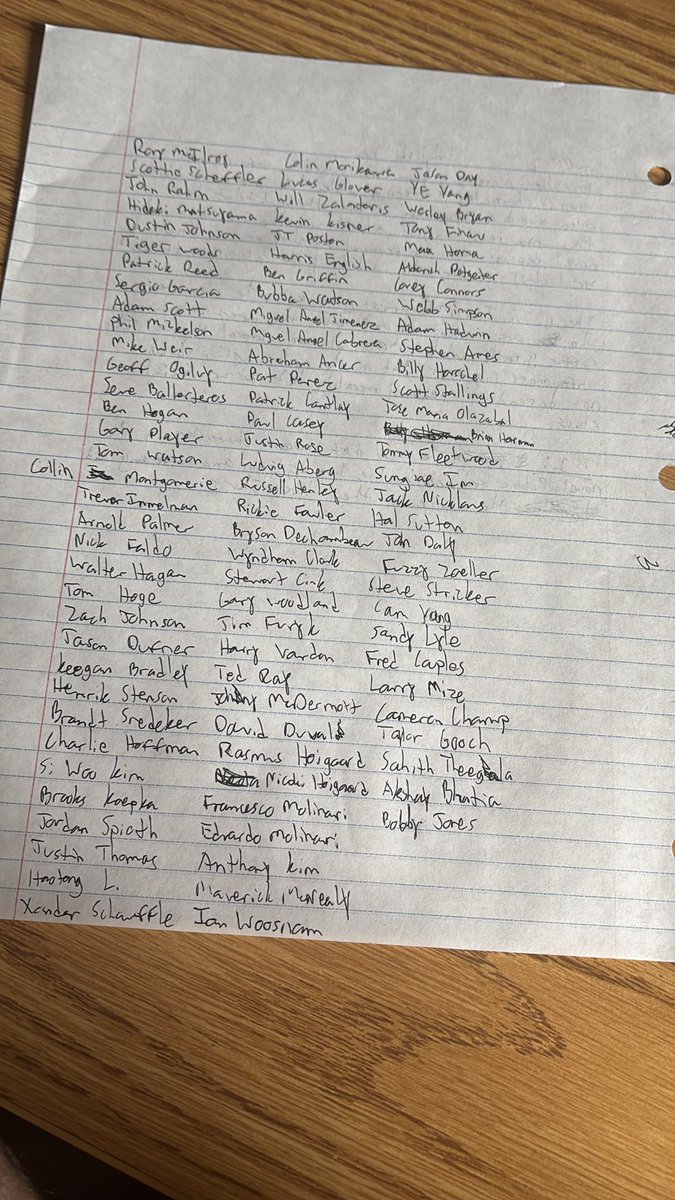 Rory McIlroy
Scottie Scheffler
John Rahm
Hideki Matsuyama
Dustin Johnson
Tiger Woods
Patrick Reed
Sergio Garcia
Adam Scott
Phil Mickelson
Mike Weir
Geoff Ogilvy
Seve Ballesteros
Ben Hogan
Gary Player
Tom Watson
Collin Montgomerie
Trevor Immelman
Arnold Palmer
Nick Faldo
Walter Hagan
Tom Hoge
Zach Johnson
Jason Dufner
Keegan Bradley
Henrik Stenson
Brandt Snedeker
Charlie Hoffman
Si Woo Kim
Brooks Koepka
Jordan Spieth
Justin Thomas
Haotong L.
Xander Schauffle
Colin Morikawa
Lucas Glover
Will Zalatoris
Kevin Kisner
JT Poston
Harris English
Ben Griffin
Bubba Watson
Miguel Angel Jimenez
Miguel Angel Cabrera
Abraham Ancer
Pat Perez
Patrick Cantlay
Paul Casey
Justin Rose
Ludvig Aberg
Russell Henley
Rickie Fowler
Bryson Dechambeau
Wyndham Clark
Stewart Cink
Gary Woodland
Jim Furyk
Harry Vardon
Ted Ray
Johnny McDermott
David Duval
Rasmus Hoigaard
Nicolai Hoigaard
Francesco Molinari
Edvardo Molinari
Anthony Kim
Maverick McNealy
Ian Woosnam
Jason Day
YE Yang
Wesley Bryan
Tony Finau
Max Homa
Aldrich Potgeiter
Corey Connors
Webb Simpson
Adam Hadwin
Stephen Ames
Billy Horschel
Scott Stallings
Jose Maria Olazabal
Brian Harman
Tommy Fleetwood
Sungjae Im
Jack Nicklaus
Hal Sutton
John Daly
Fuzzy Zoeller
Steve Stricker
Can Yang
Sandy Lyle
Fred Cuples
Larry Mize
Cameron Champ
Talor Gooch
Sahith Theegala
Akshay Bhatia
Bobby Jones